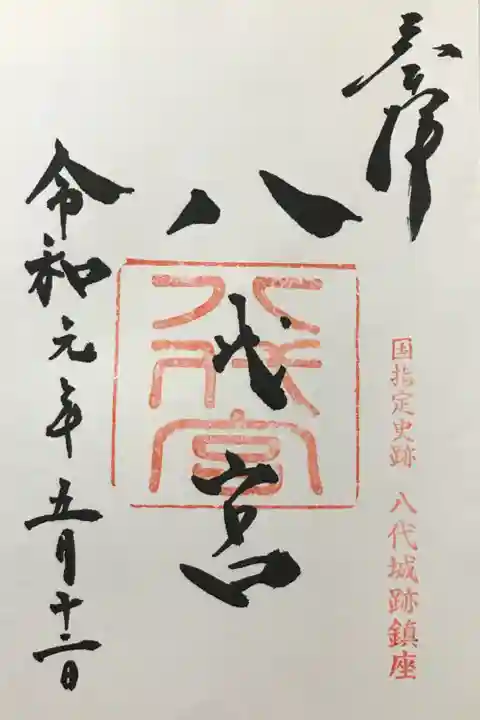 奉拝
国指定史跡 八代城跡鎮座
八代宮
八代宮
令和元年五月十二日